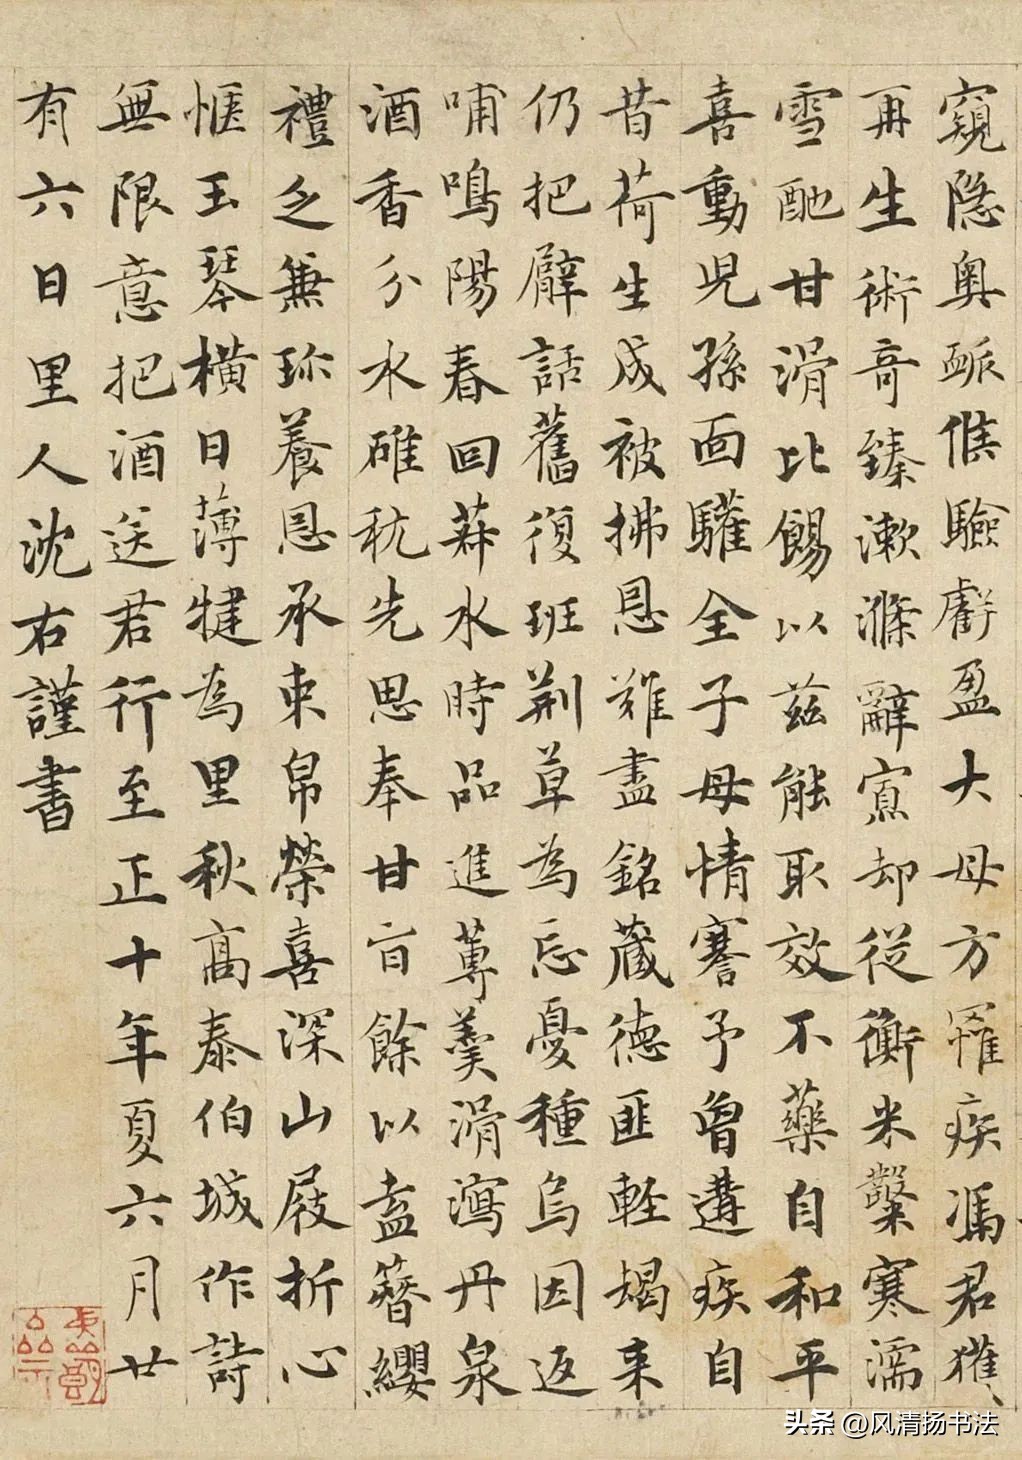 窺隐奥脈候驗虧盈大母方罹疾馮君獲
再生術奇臻漱滌辭賔却從衡米鑿寒濡
雪酏甘滑比餳以兹能取效不藥自和平
喜動児孫面驩全子母情謇予曽遘疾自
昔荷生成被拂恩難盡銘藏德匪軽朅来
仍把臂話舊復班荆草為忘憂種烏因返
哺鳴陽春回莽水時品進蓴羹滑瀉丹泉
酒香分水碓秔先思奉甘旨餘以盍簪纓
禮之兼珎養恩承束帛榮喜深山屐折心
惬玉琴横日薄犍為里秋髙泰伯城作詩
無限意把酒送君行至正十年夏六月廿
有六日里人沈右謹書
头条 @风清扬书法